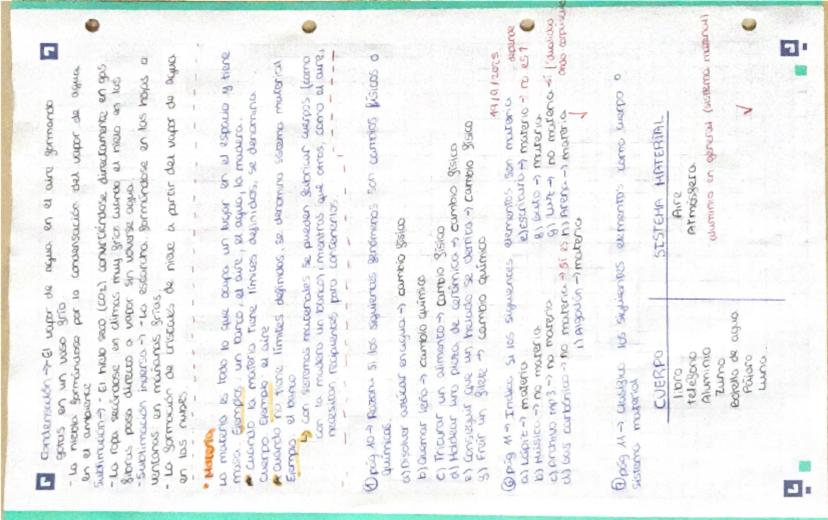 Condensación → El vapor de agua en el aire formando
gotas en un vaso frío
- La niebla formándose por la condensación del vapor de agua
en el ambiente
Sublimación → - El hielo seco (CO2) convirtiéndose directamente en gas
- La ropa secándose en climas muy fríos cuando el hielo en las
fibras pasa directo a vapor sin volverse agua
- Sublimación inversa → - La escarcha formándose en las hojas o
ventanas en mañanas frías
- La formación de cristales de nieve a partir del vapor de agua
en las nubes.
• Materia
La materia es todo lo que ocupa un lugar en el espacio y tiene
masa. Ejemplos: un banco, el aire, el agua, la madera.
Cuando la materia tiene límites definidos, se denomina
cuerpo. Ejemplo: el aire
Cuando no tiene límites definidos, se denomina sistema material
Ejemplo: el banco
↳ con sistemas materiales se pueden fabricar cuerpos (como
con la madera un banco), mientras que otros, como el aire,
necesitan recipientes para contenerlos.
① pág 10 → Razona si los siguientes fenómenos son cambios físicos o
químicos.
a) Disolver azúcar en agua → cambio físico
b) Quemar leña → cambio químico
c) Triturar un alimento → cambio físico
d) Modelar una pieza de cerámica → cambio físico
e) Conseguir que un helado se derrita → cambio físico
g) Freír un filete → cambio químico
19/9/2025
⑥ pág 11 → Indica si los siguientes elementos son materia
a) Lápiz → materia
b) Música → no materia
c) Archivo mp3 → no materia
d) Gas carbónico → no materia → sí es
e) Escritura → materia → no es? depende
g) Luz → no materia
h) Arena → materia
i) Algodón → materia
⑦ pág 11 → Clasifica los siguientes elementos como cuerpo o
sistema material
CUERPO
SISTEMA MATERIAL
libro
teléfono
Aluminio
Zumo
Botella de agua
Pájaro
Luna
Aire
Atmósfera
aluminio en general (sistema material)